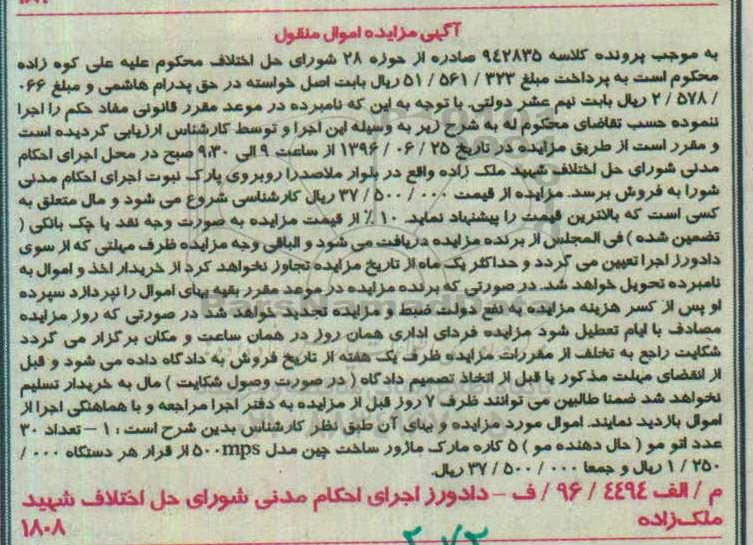 آگهی مزایده اموال منقول
به موجب پرونده کلاسه ۹۴۲۸۳۵ صادره از حوزه ۲۸ شورای حل اختلاف محکوم علیه علی کوه زاده
محکوم است به پرداخت مبلغ ۳۲۳ / ۵۶۱ / ۵۱ ریال بابت اصل خواسته در حق پدرام هاشمی و مبلغ ۰۶۶
/ ۵۷۸ / ۲ ریال بابت نیم عشر دولتی. با توجه به این که نامبرده در موعد مقرر قانونی مفاد حکم را اجرا
ننموده حسب تقاضای محکوم له به شرح زیر به وسیله این اجرا و توسط کارشناس ارزیابی گردیده است
و مقرر است از طریق مزایده در تاریخ ۲۵ / ۰۶ / ۱۳۹۶ از ساعت ۹ الی ۹،۳۰ صبح در محل اجرای احکام
مدنی شورای حل اختلاف شهید ملک زاده واقع در بلوار ملاصدرا روبروی پارک نبوت اجرای احکام مدنی
شورا به فروش برسد. مزایده از قیمت ۰۰۰ / ۵۰۰ / ۳۷ ریال کارشناسی شروع می شود و مال متعلق به
کسی است که بالاترین قیمت را پیشنهاد نماید. ۱۰ ٪ از قیمت مزایده به صورت وجه نقد یا چک بانکی (
تضمین شده ) فی المجلس از برنده مزایده دریافت می شود و الباقی وجه مزایده ظرف مهلتی که از سوی
دادورز اجرا تعیین می گردد و حداکثر یک ماه از تاریخ مزایده تجاوز نخواهد کرد از خریدار اخذ و اموال به
نامبرده تحویل خواهد شد. در صورتی که برنده مزایده در موعد مقرر بقیه بهای اموال را نپردازد سپرده
او پس از کسر هزینه مزایده به نفع دولت ضبط و مزایده تجدید خواهد شد در صورتی که روز مزایده
مصادف با ایام تعطیل شود مزایده فردای اداری همان روز در همان ساعت و مکان برگزار می گردد
شکایت راجع به تخلف از مقررات مزایده ظرف یک هفته از تاریخ فروش به دادگاه داده می شود و قبل
از انقضای مهلت مذکور یا قبل از اتخاذ تصمیم دادگاه ( در صورت وصول شکایت ) مال به خریدار تسلیم
نخواهد شد ضمنا طالبین می توانند ظرف ۷ روز قبل از مزایده به دفتر اجرا مراجعه و با هماهنگی اجرا از
اموال بازدید نمایند. اموال مورد مزایده و بهای آن طبق نظر کارشناس بدین شرح است : ۱ – تعداد ۳۰
عدد اتو مو ( حال دهنده مو ) ۵ کاره مارک مازور ساخت چین مدل ۵۰۰mps از قرار هر دستگاه ۰۰۰ /
۲۵۰ / ۱ ریال و جمعا ۰۰۰ / ۵۰۰ / ۳۷ ریال.
م / الف ٤٤٩٤ / ۹۶ / ف – دادورز اجرای احکام مدنی شورای حل اختلاف شهید
ملک‌زاده
۱۸۰۸
ParsNamadData